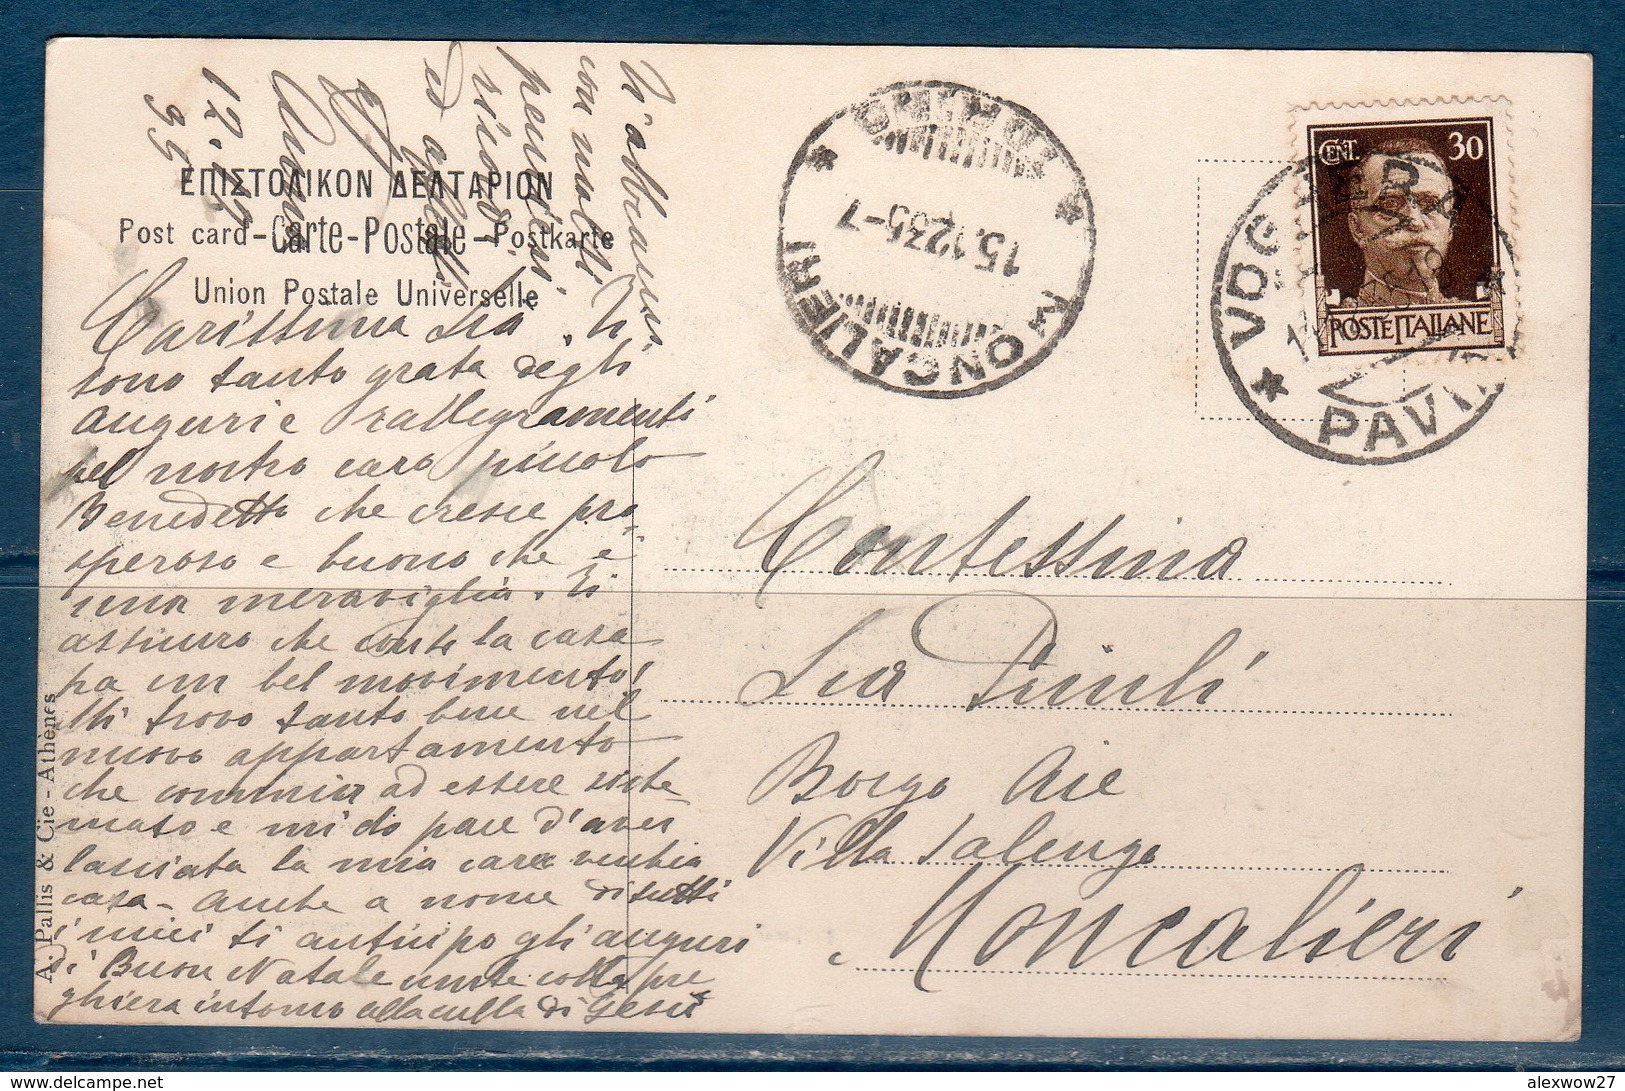 ΕΠΙΣΤΟΛΙΚΟΝ ΔΕΛΤΑΡΙΟΝ
Post card - Carte-Postale - Postkarte
Union Postale Universelle
Carissima Lia. Ti
sono tanto grata degli
auguri e rallegramenti
pel nostro caro piccolo
Benedetto che cresce pro-
speroso e buono che è
una meraviglia. Ti
assicuro che la casa
ha un bel movimento!
Mi trovo tanto bene nel
nuovo appartamento
che comincia ad essere siste-
mato e mi do pace d'aver
lasciata la mia cara vecchia
casa - Anche a nome di tutti
i miei ti anticipo gli auguri
di Buon Natale unite colla pre
ghiera intorno alla culla di Gesù
Ti abbraccio
con molti
pensieri
ricordi
ed affetti
Anna
12.12
35
A. Pallis & Cie - Athènes
MONCALIERI
TORINO
15.12.35-7
CENT. 30
POSTE ITALIANE
VOGHERA
PAVIA
Contessina
Lia
Borgo Aie
Villa Salengo
Moncalieri
alexwow27